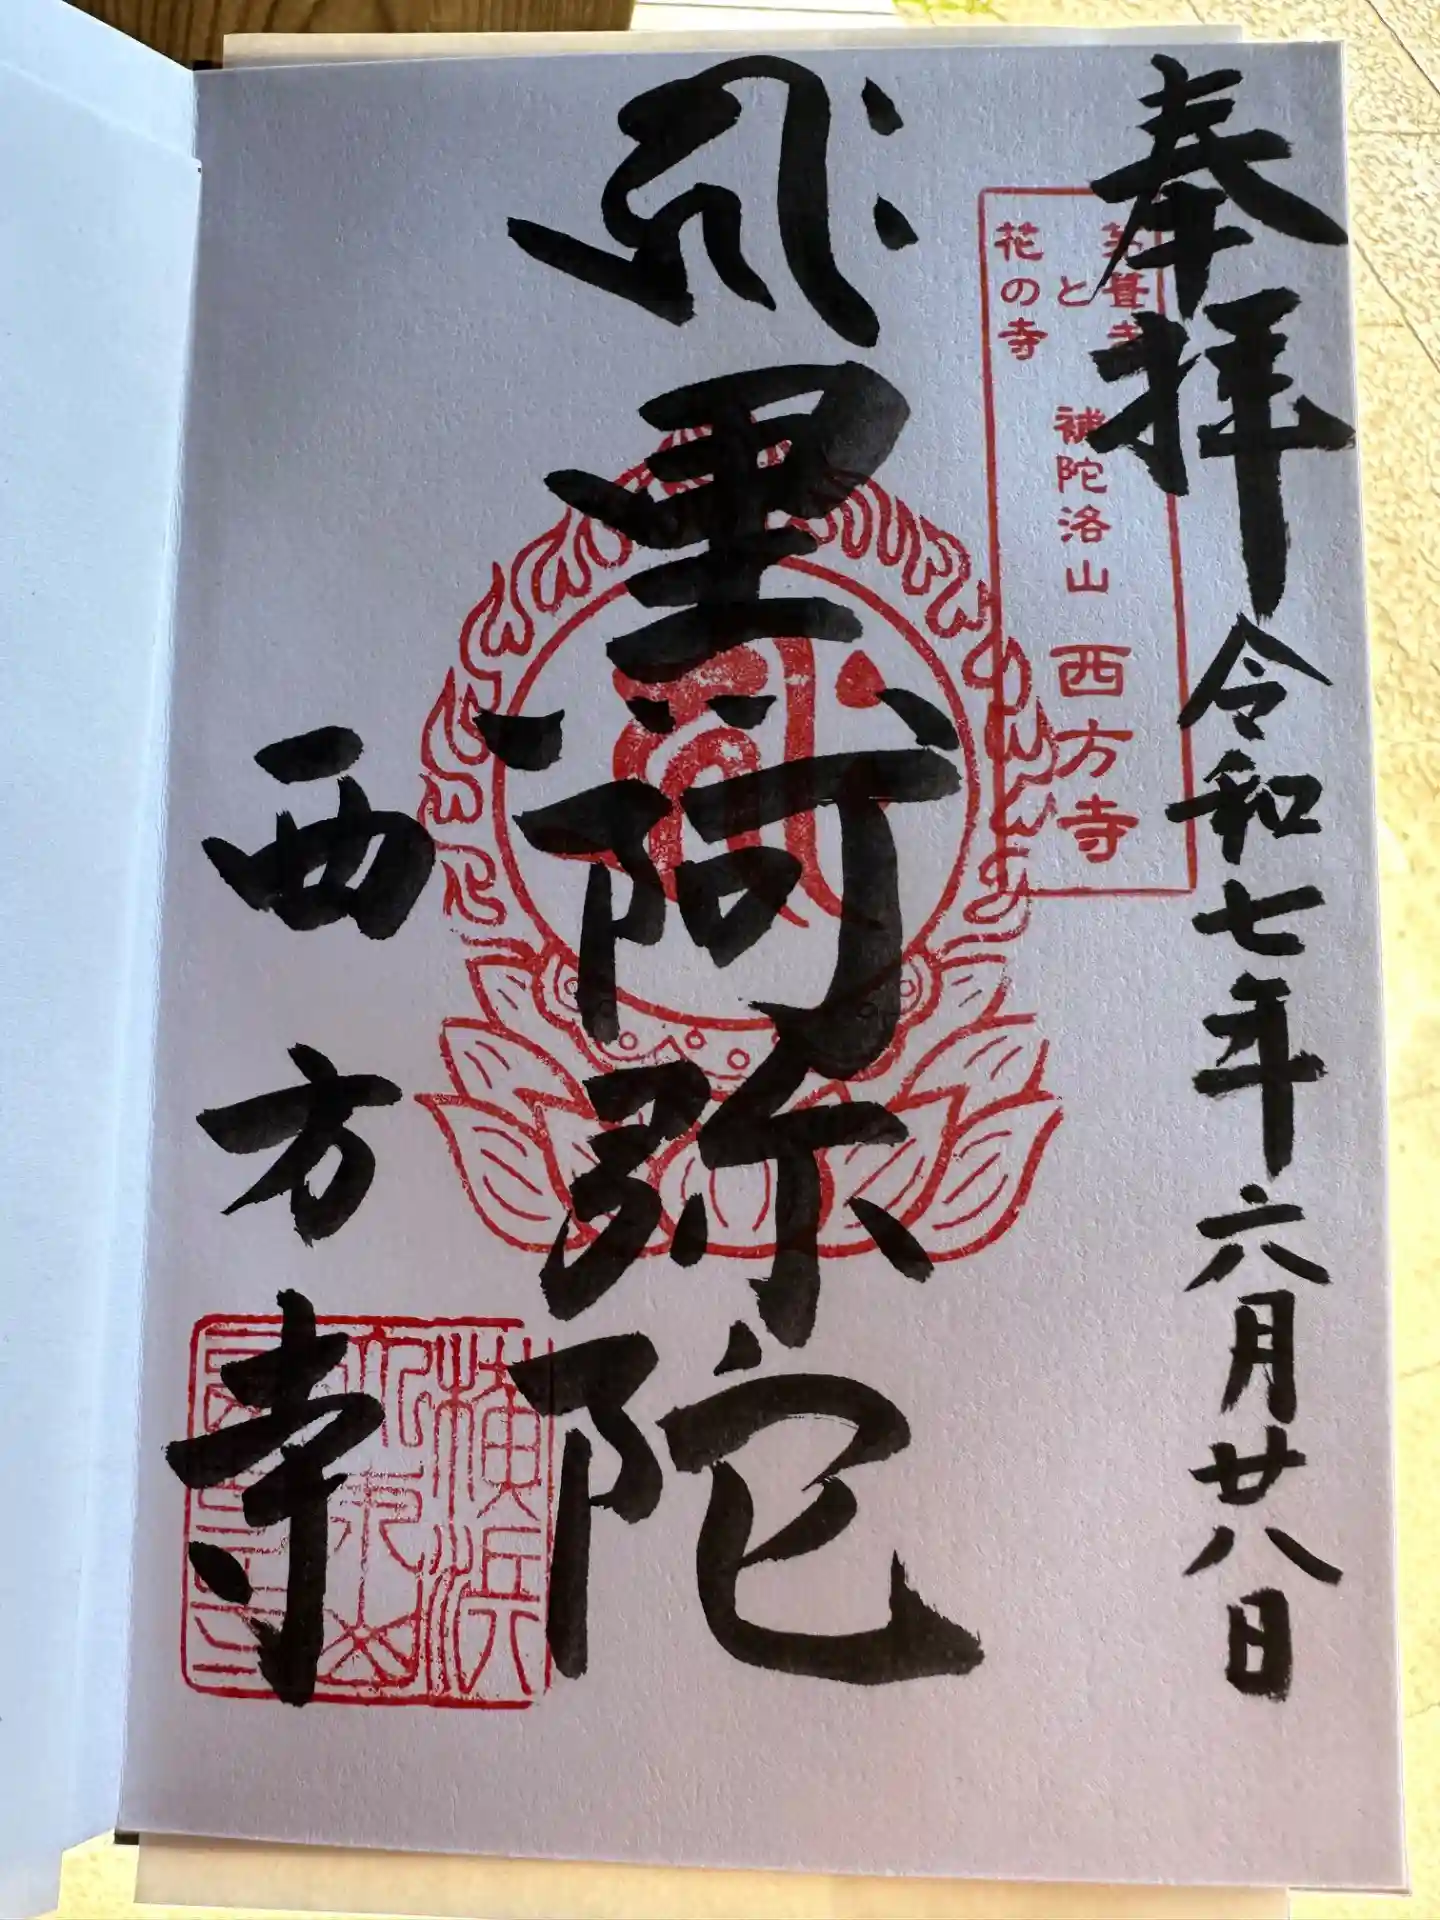 奉拝 令和七年六月廿八日
茅葺寺
と
花の寺
補陀洛山 西方寺
𑖮𑖿𑖨𑖱𑖾
黒阿弥陀
西方寺
横浜